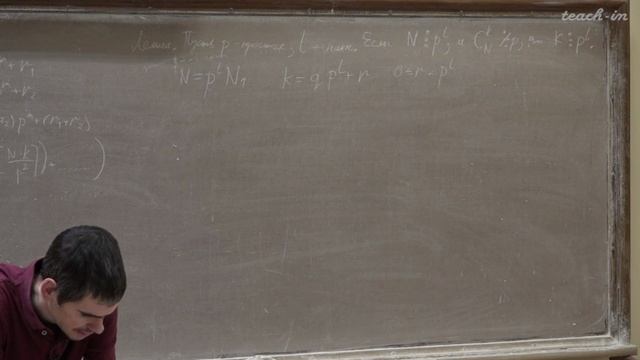 teach-in
Лемма. Пусть p - простое, l - нат. Если N ⋮ p^l, и C_N^k ⋮̸ p, то k ⋮ p^l.
r_1
N = p^l N_1    k = q p^l + r    0 ≤ r < p^l
+ r_2
_2) p^n + (r_1 + r_2)